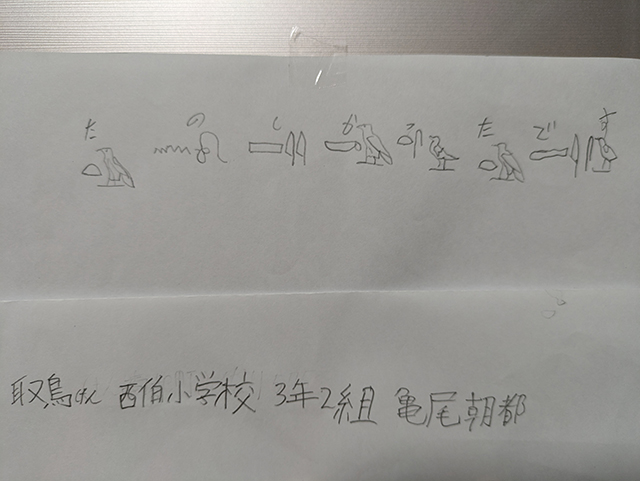 たのしかったです
取鳥けん 西伯小学校 3年2組 亀尾朝都